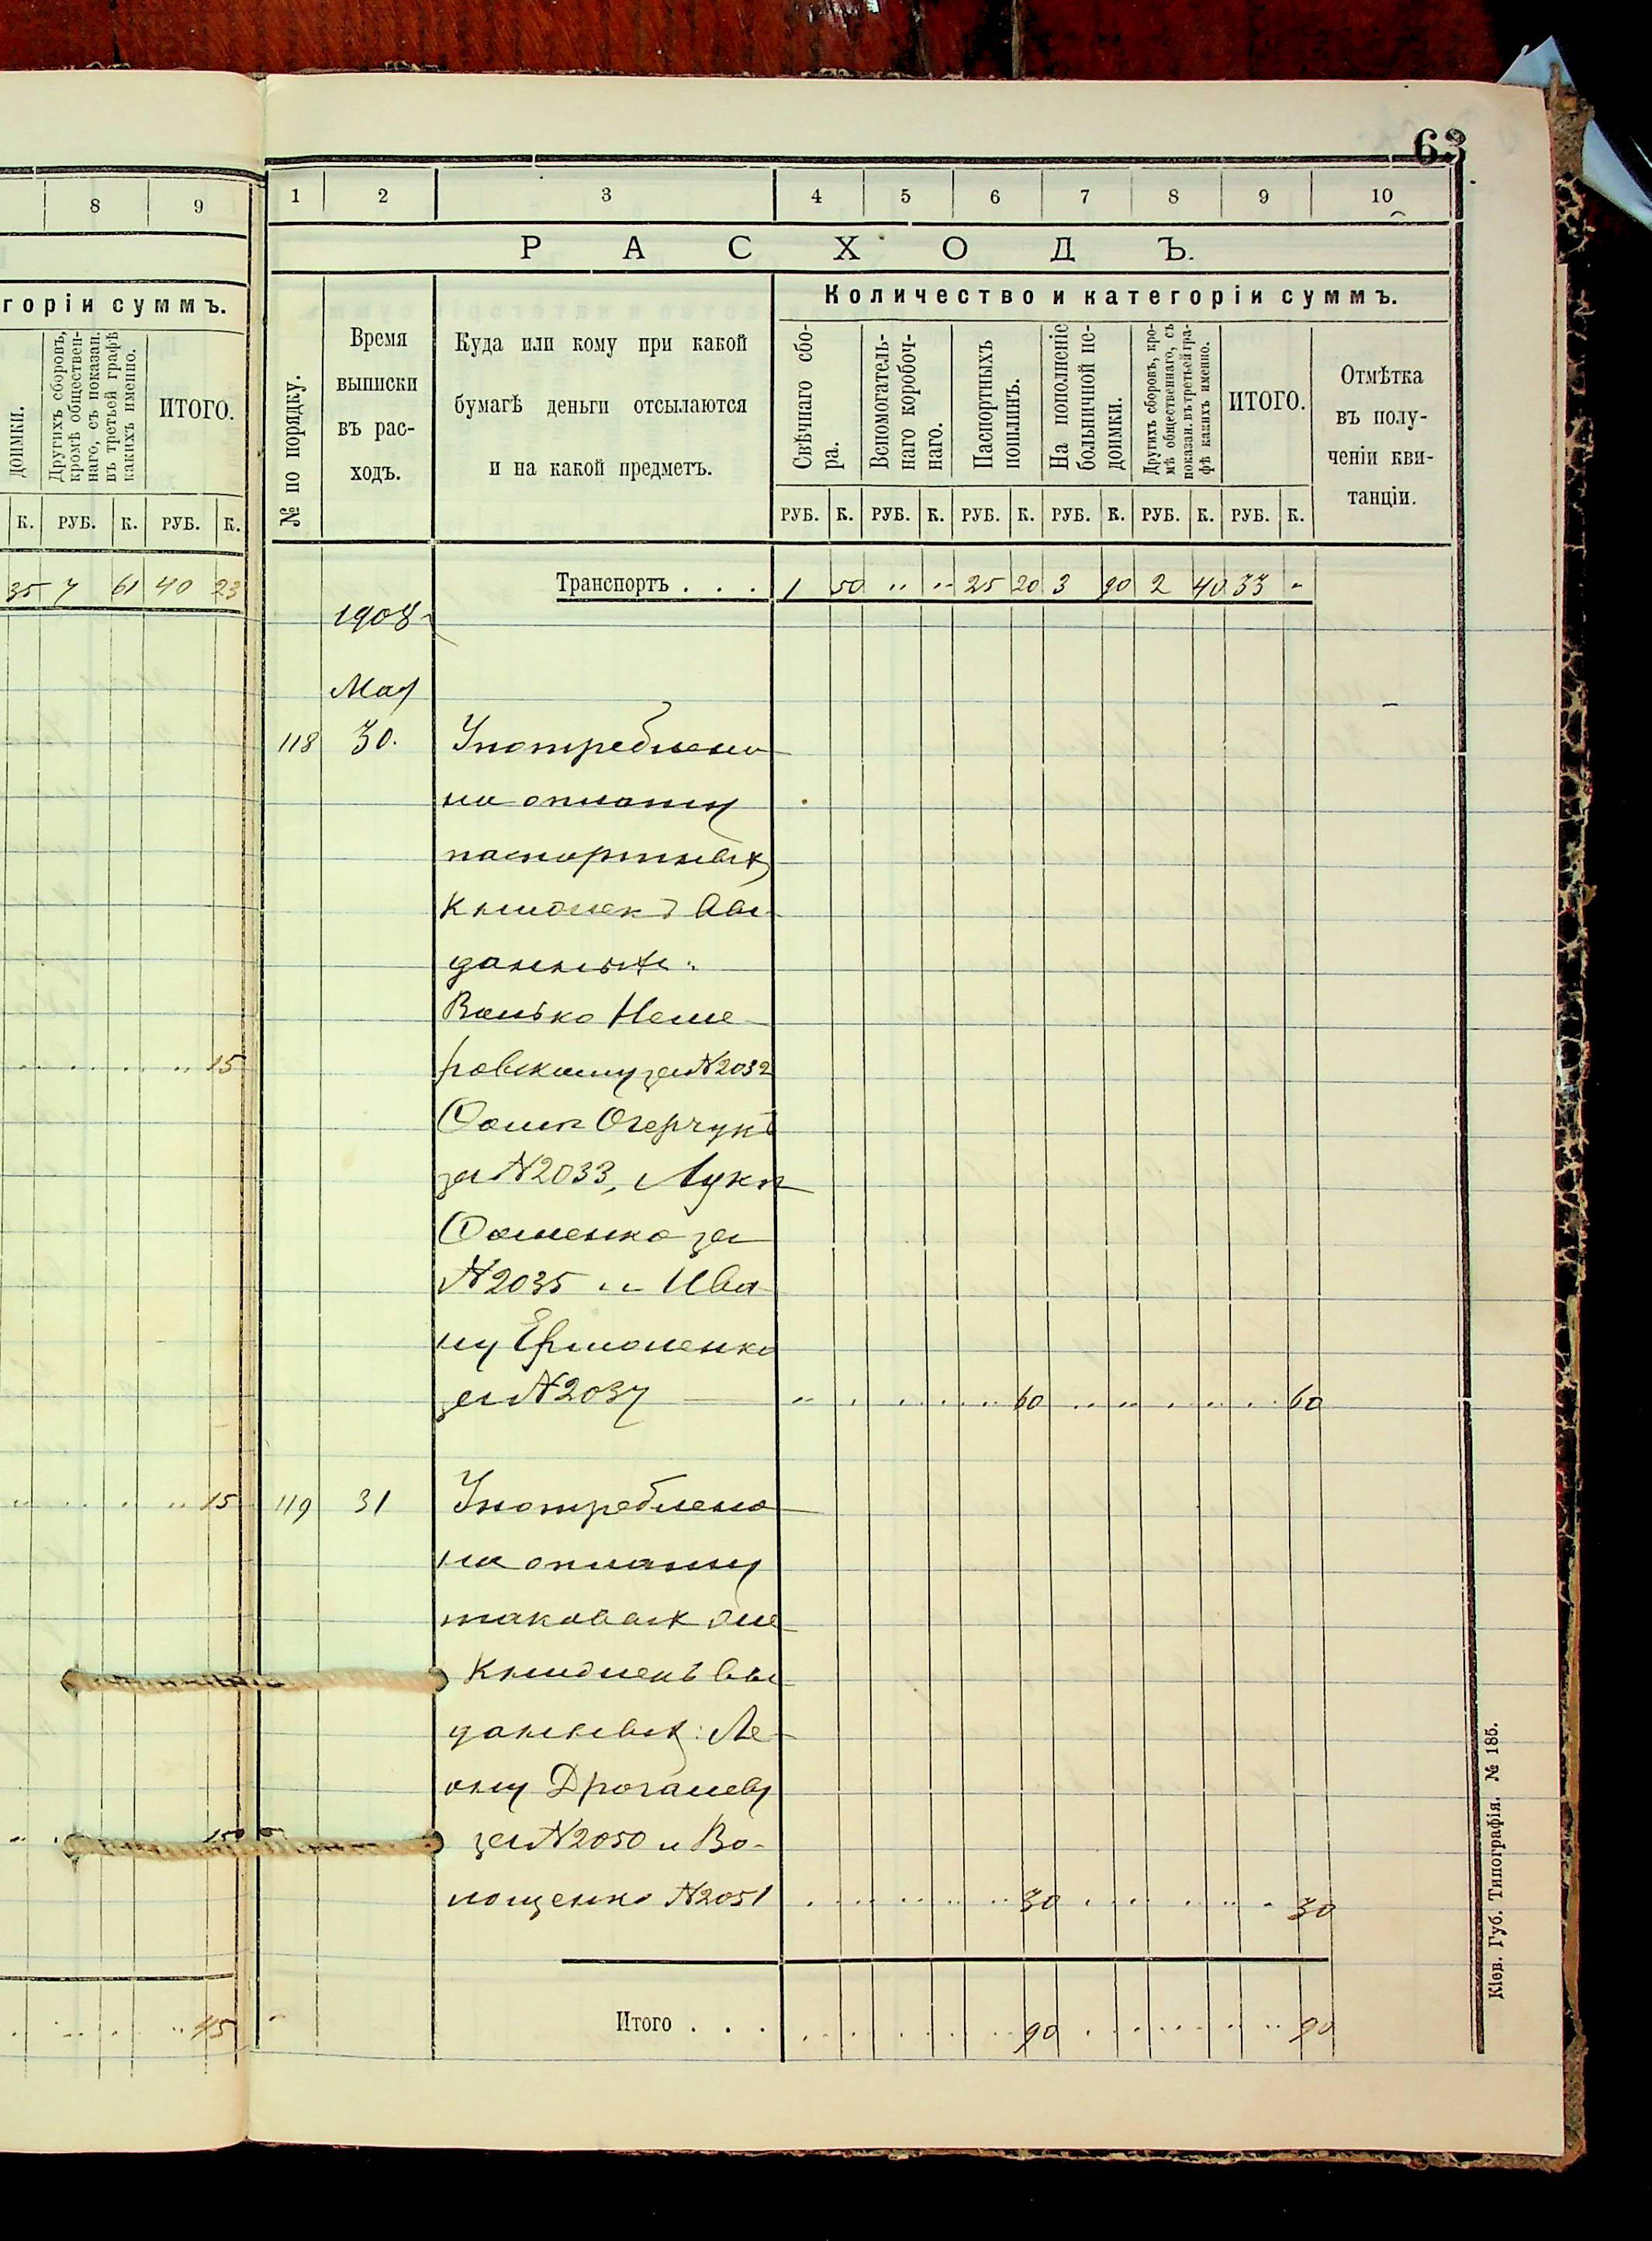 63
8 9
горіи суммъ.
доимки.
Другихъ сборовъ,
кромѣ обществен-
наго, съ показан.
въ третьей графѣ
какихъ именно.
ИТОГО.
К. РУБ. К. РУБ. К.
35 7 61 40 23
15
15
45
1 2 3 4 5 6 7 8 9 10
РАСХОДЪ.
Количество и категоріи суммъ.
№ по порядку.
Время
выписки
въ рас-
ходъ.
Куда или кому при какой
бумагѣ деньги отсылаются
и на какой предметъ.
Свѣчнаго сбо-
ра.
Вспомогатель-
наго коробоч-
наго.
Паспортныхъ
пошлинъ.
На пополненіе
больничной не-
доимки.
Другихъ сборовъ, кро-
мѣ общественнаго, съ
показан. въ третьей гра-
фѣ какихъ именно.
ИТОГО.
Отмѣтка
въ полу-
ченіи кви-
танціи.
РУБ. К. РУБ. К. РУБ. К. РУБ. К. РУБ. К. РУБ. К.
Транспортъ . . . 1 50 " " 25 20 3 90 2 40 33 "
1908
Мая
118 30. Употреблено
на оплату
паспортныхъ
книжекъ вы-
данныхъ:
Ванько Неме-
ровскому за №2032
за №2033, Луки
Фоменко за
№2035 и Ива-
ну Ермоленко
за №2037 60 60
119 31 Употреблено
на оплату
таковыхъ же
книжекъ вы-
данныхъ: Ле-
ону Дрогалеву
за №2050 и Во-
лощенко №2051 30 30
Итого . . . 90 90
Кіев. Губ. Типографія. № 185.